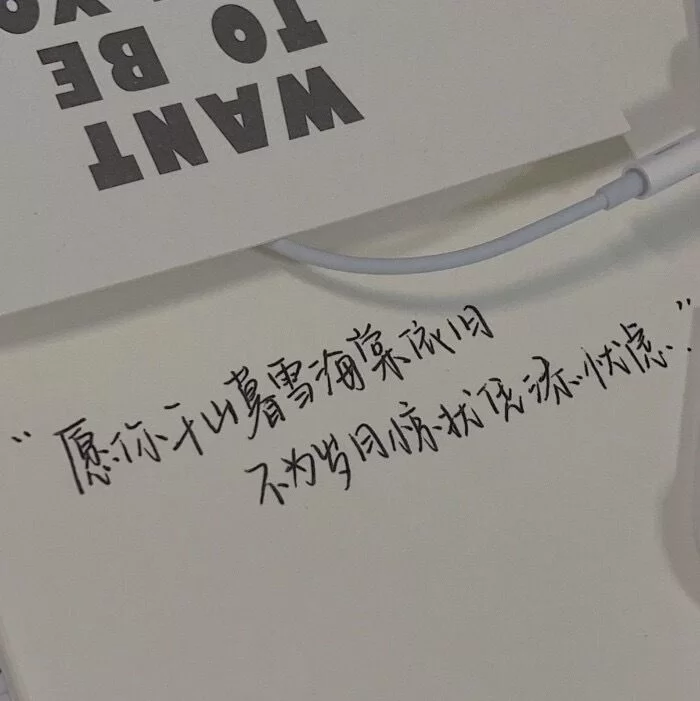 WANT
TO BE
“愿你千山暮雪海棠依旧
不为岁月惊扰凭添忧虑”